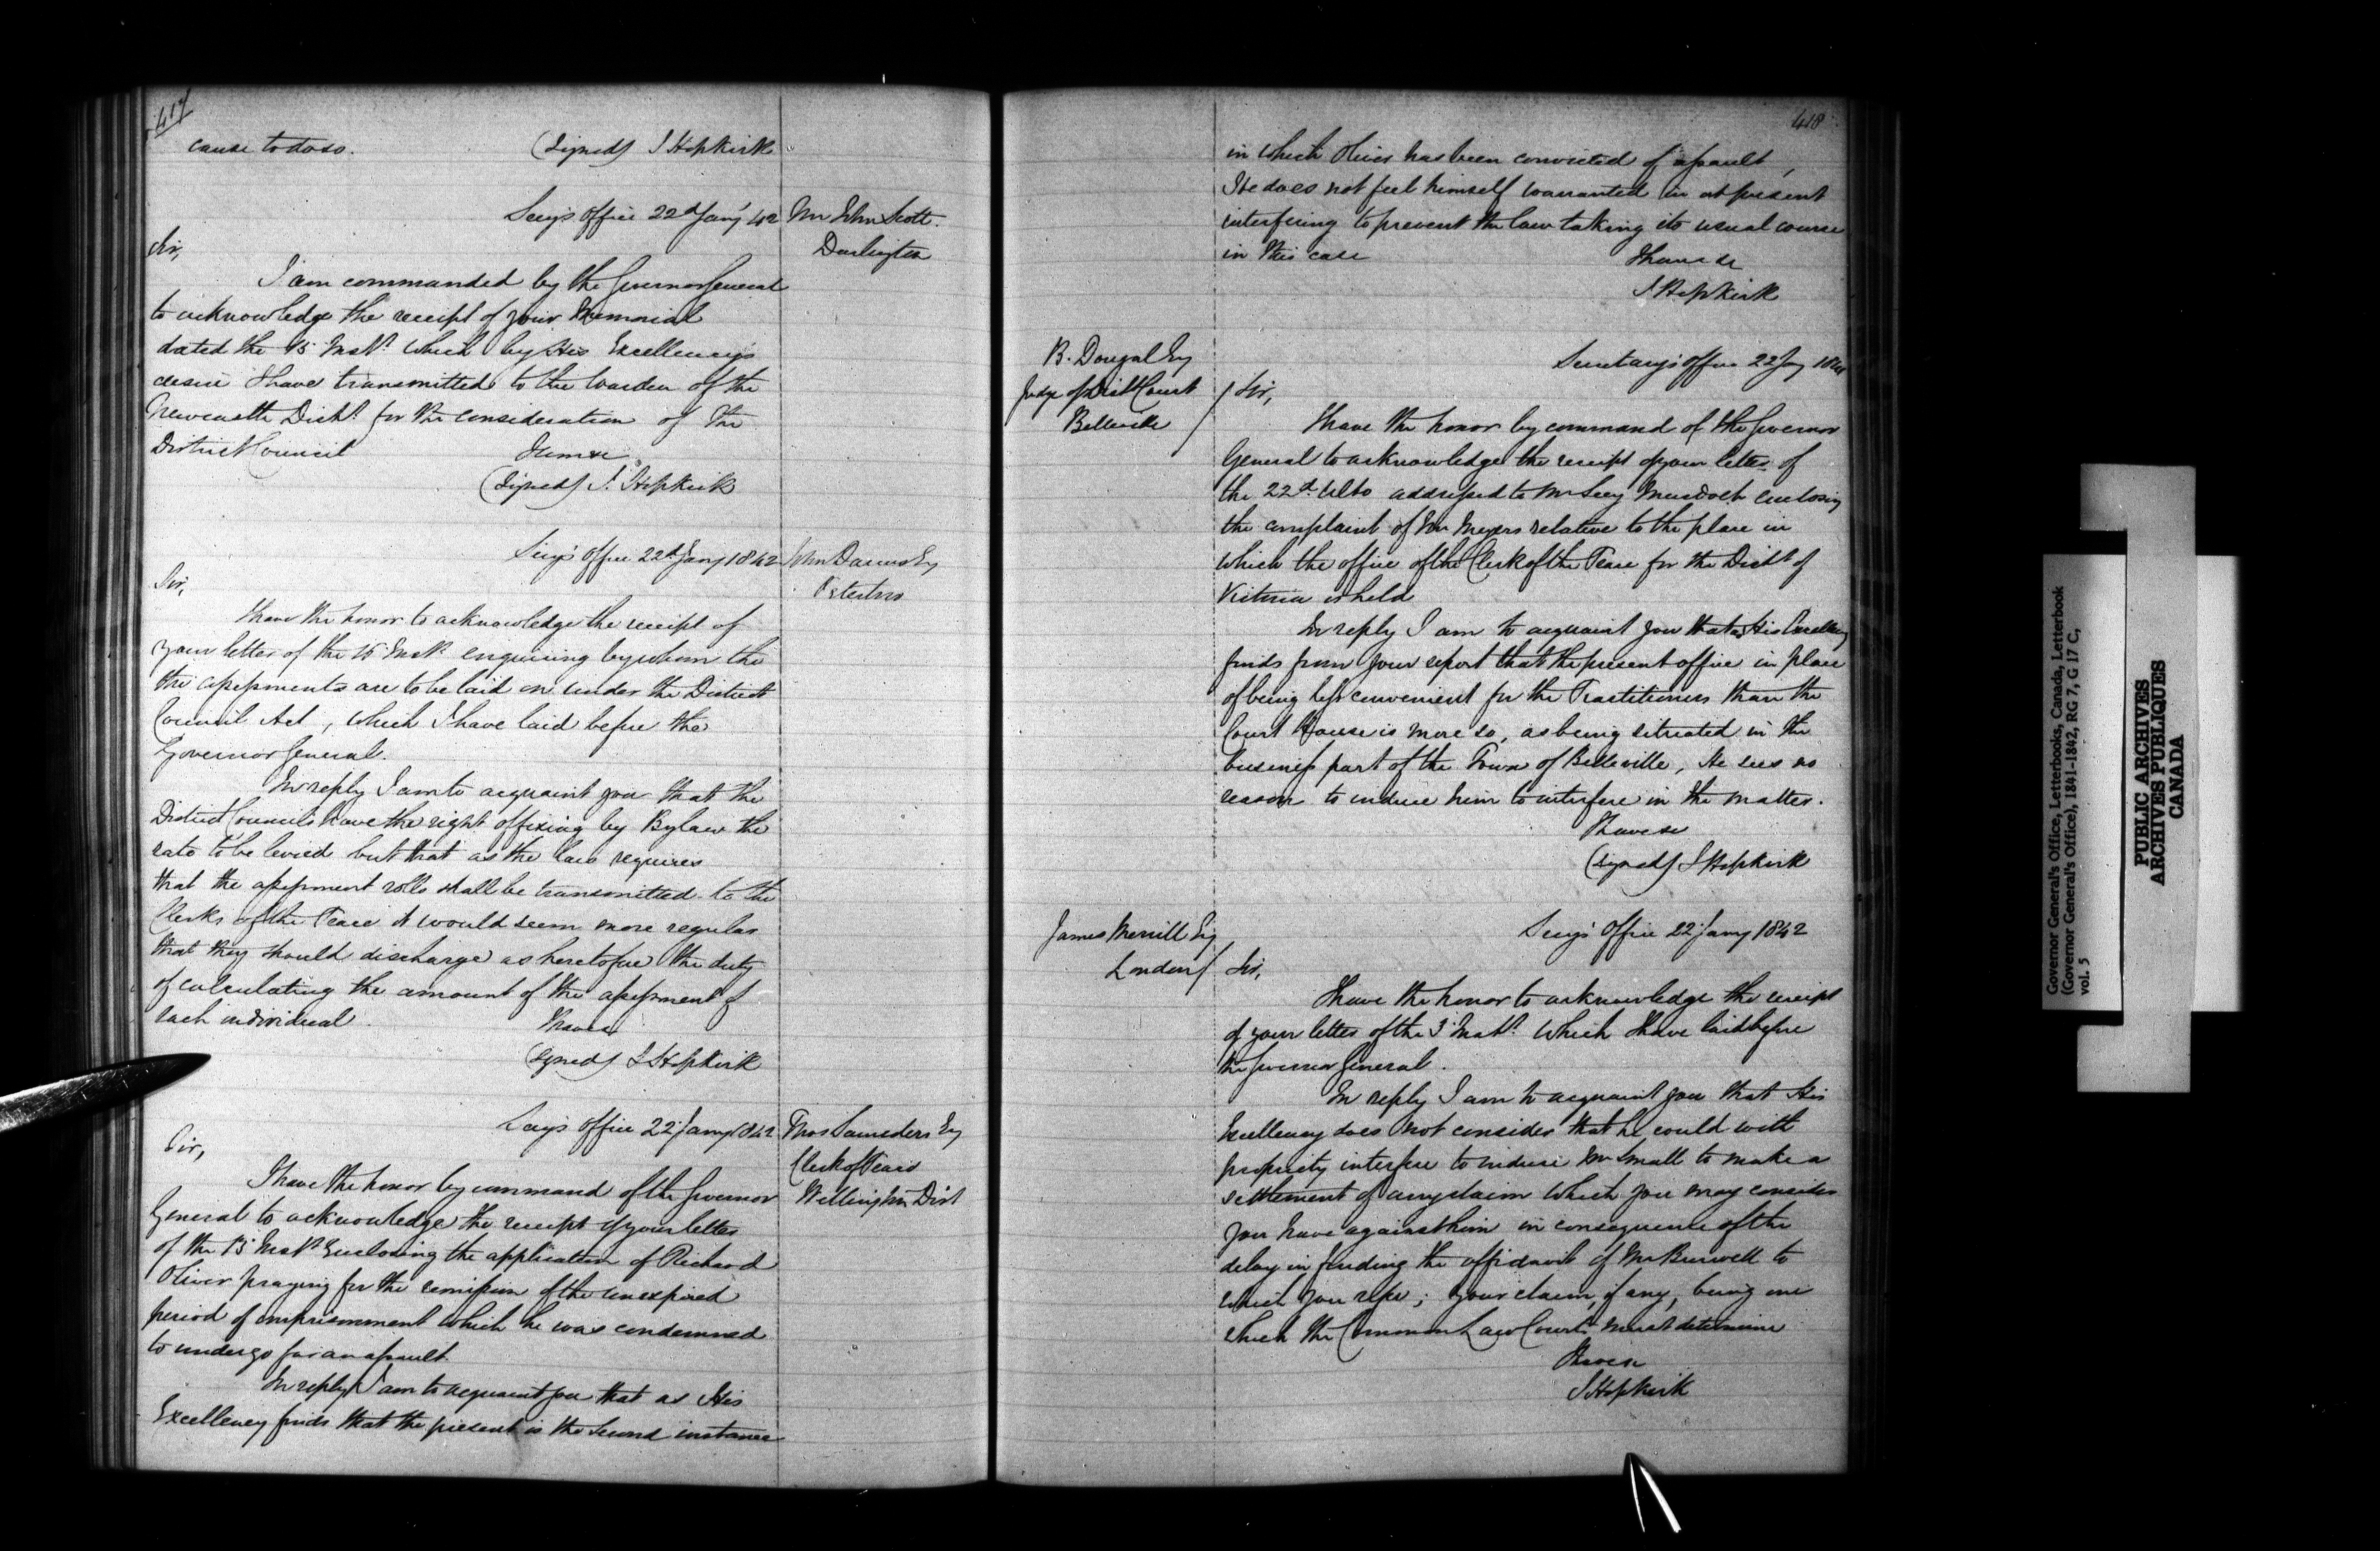 417
cause to do so. (Signed) J Hopkirk
Secy's Office 22d Jany 42
Mr John Scott
Darlington
Sir,
I am commanded by the Governor General
to acknowledge the receipt of your Memorial
dated the 15 Inst. which by His Excellency's
desire I have transmitted to the Warden of the
Newcastle Dist. for the consideration of the
District Council
(Signed) J. Hopkirk
Secy's Office 22d Jany 1842
John Esq
Sir,
I have the honor to acknowledge the receipt of
your letter of the 15 Inst. enquiring by whom the
the assessments are to be laid on under the District
Council Act, which I have laid before the
Governor General.
In reply I am to acquaint you that the
District Councils have the right of fixing by Bylaw the
rate to be levied but that as the law requires
that the assessment rolls shall be transmitted to the
Clerks of the Peace it would seem more regular
that they should discharge as heretofore the duty
of calculating the amount of the assessment of
each individual.
I have &c
(Signed) J Hopkirk
Secy's Office 22 Jany 1842
Thos Saunders Esq
Clerk of Peace
Wellington Dist
Sir,
I have the honor by command of the Governor
General to acknowledge the receipt of your letter
of the 15 Inst. Enclosing the application of Richard
Oliver praying for the remission of the unexpired
period of imprisonment which he was condemned
to undergo for an assault.
In reply I am to acquaint you that as His
Excellency finds that the present is the second instance
418
in which Oliver has been convicted of assault,
He does not feel himself warranted in at present
interfering to prevent the law taking its usual course
in this case
I have &c
J Hopkirk
B. Dougal Esq
Judge of Dist Court
Belleville
Secretary's Office 22 Jany
Sir,
I have the honor by command of the Governor
General to acknowledge the receipt of your letter of
the 22d Ulto addressed to Mr Secy Murdoch enclosing
the complaint of Mr Meyers relative to the place in
which the office of the Clerk of the Peace for the Dist of
Victoria is held
In reply I am to acquaint you that as His Excellency
finds from your report that the present office in place
of being less convenient for the Practitioners than the
Court House is more so, as being situated in the
business part of the Town of Belleville, He sees no
reason to induce him to interfere in the matter.
I have &c
(signed) J Hopkirk
James Merrill Esq
London
Secy's Office 22 Jany 1842
Sir,
I have the honor to acknowledge the receipt
of your letter of the 3 Inst. which I have laid before
the Governor General.
In reply I am to acquaint you that His
Excellency does not consider that he could with
propriety interfere to induce Mr Small to make a
settlement of any claim which you may consider
you have against him in consequence of the
delay in finding the affidavit of Mr Burwell to
which you refer; your claim, if any, being one
which the Common Law Courts must determine
I have &c
J Hopkirk
Governor General's Office, Letterbooks, Canada, Letterbook
(Governor General's Office), 1841-1842, RG 7, G 17 C,
vol. 5
PUBLIC ARCHIVES
ARCHIVES PUBLIQUES
CANADA